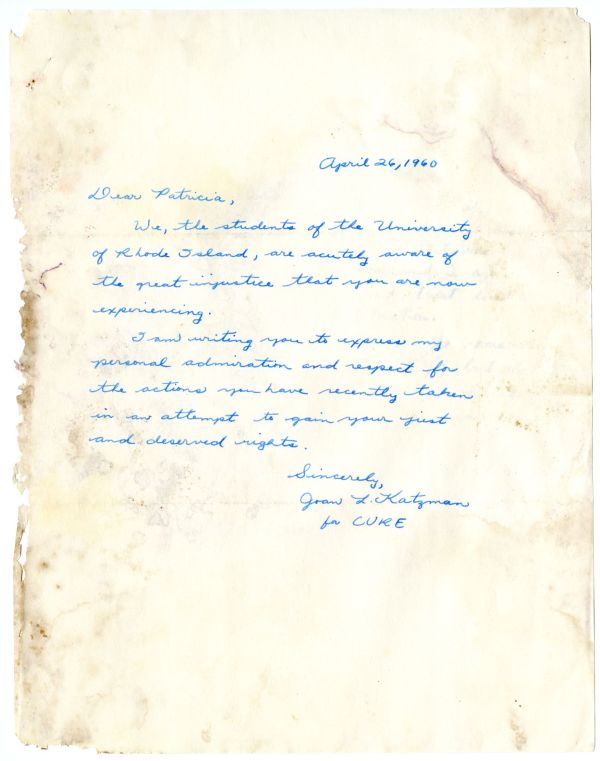 April 26, 1960
Dear Patricia,
We, the students of the University
of Rhode Island, are acutely aware of
the great injustice that you are now
experiencing.
I am writing you to express my
personal admiration and respect for
the actions you have recently taken
in an attempt to gain your just
and deserved rights.
Sincerely,
Joan L. Katzman
for CURE